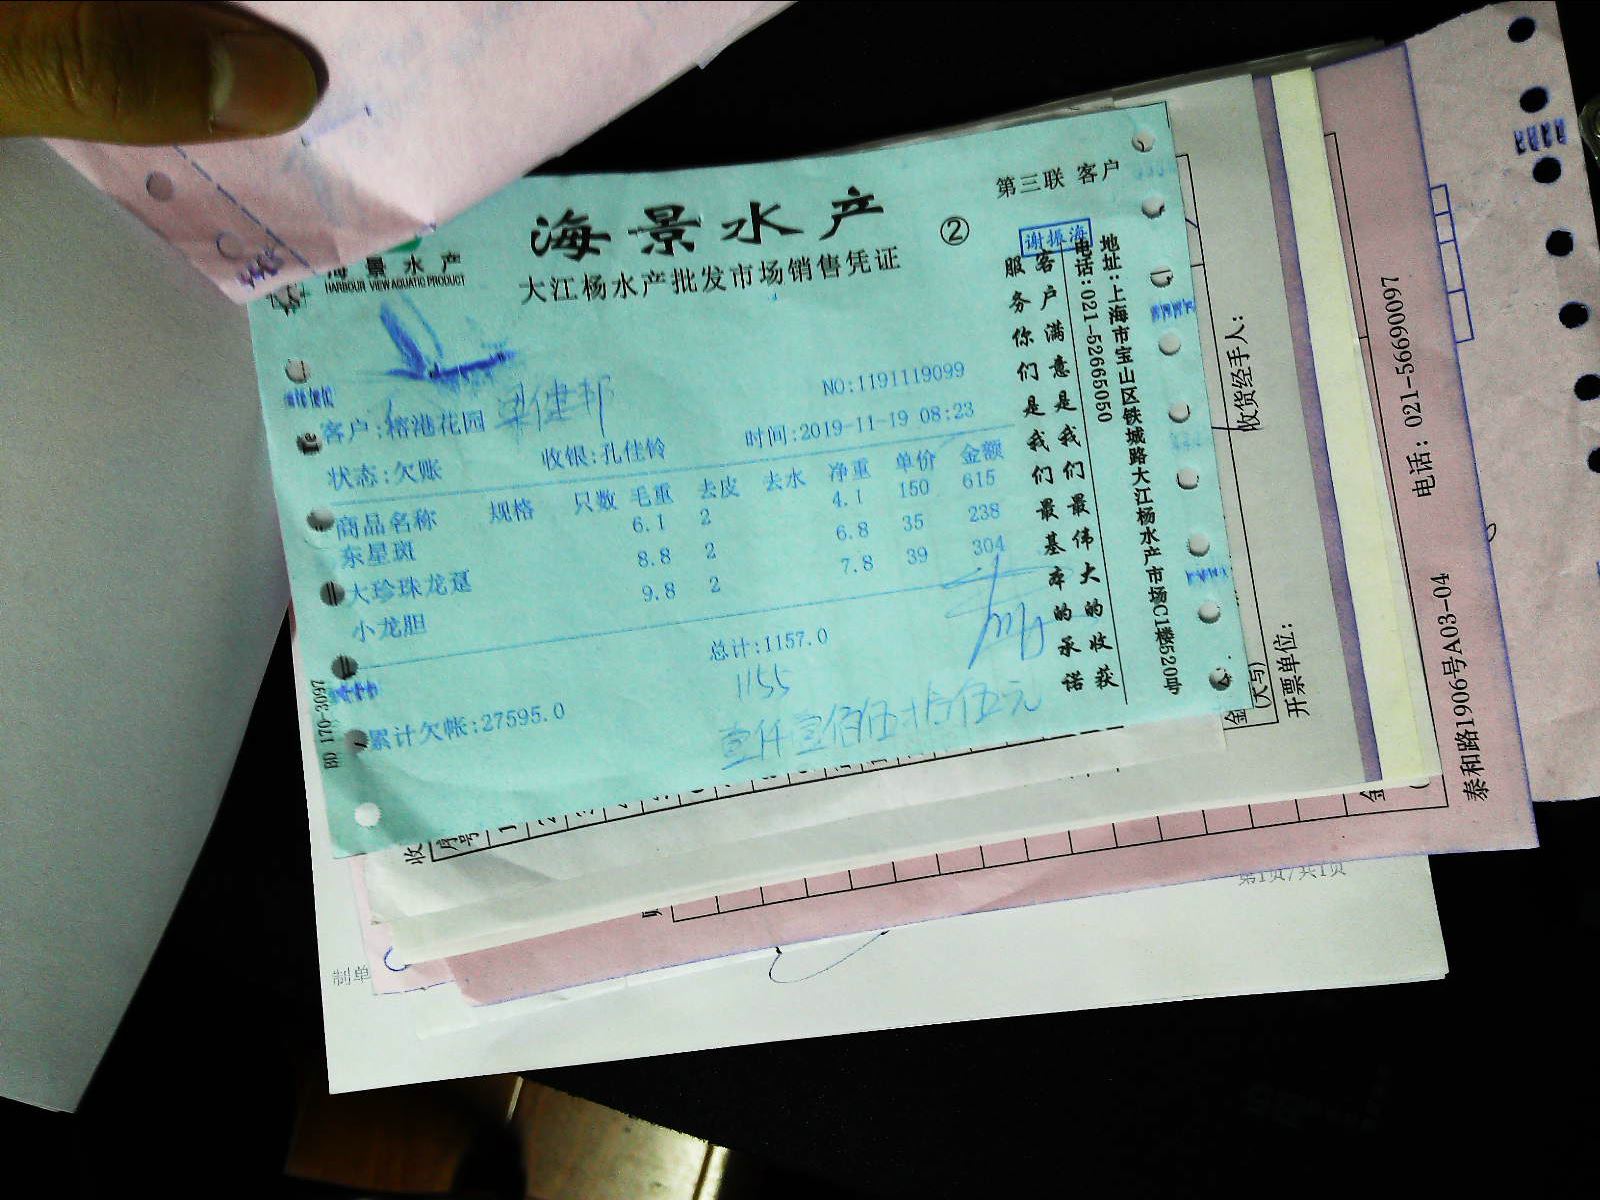 第三联 客户
海景水产
②
海景水产
HARBOUR VIEW AQUATIC PRODUCT
大江杨水产批发市场销售凭证
谢振海
NO:1191119099
客户:榕港花园
时间:2019-11-19 08:23
状态:欠账 收银:孔佳铃
商品名称 规格 只数 毛重 去皮 去水 净重 单价 金额
东星斑 6.1 2 4.1 150 615
大珍珠龙趸 8.8 2 6.8 35 238
小龙胆 9.8 2 7.8 39 304
总计:1157.0
1155
累计欠帐:27595.0
壹仟壹佰伍拾伍元
BD 170-3097
地址:上海市宝山区铁城路大江杨水产市场C1楼520号
电话:021-52665050
客户满意是我们最伟大的收获
服务你们是我们最基本的承诺
收货经手人:
开票单位:
金
(大写)
电话: 021-56690097
泰和路1906号A03-04
金
收
序号
第1页/共1页
制单